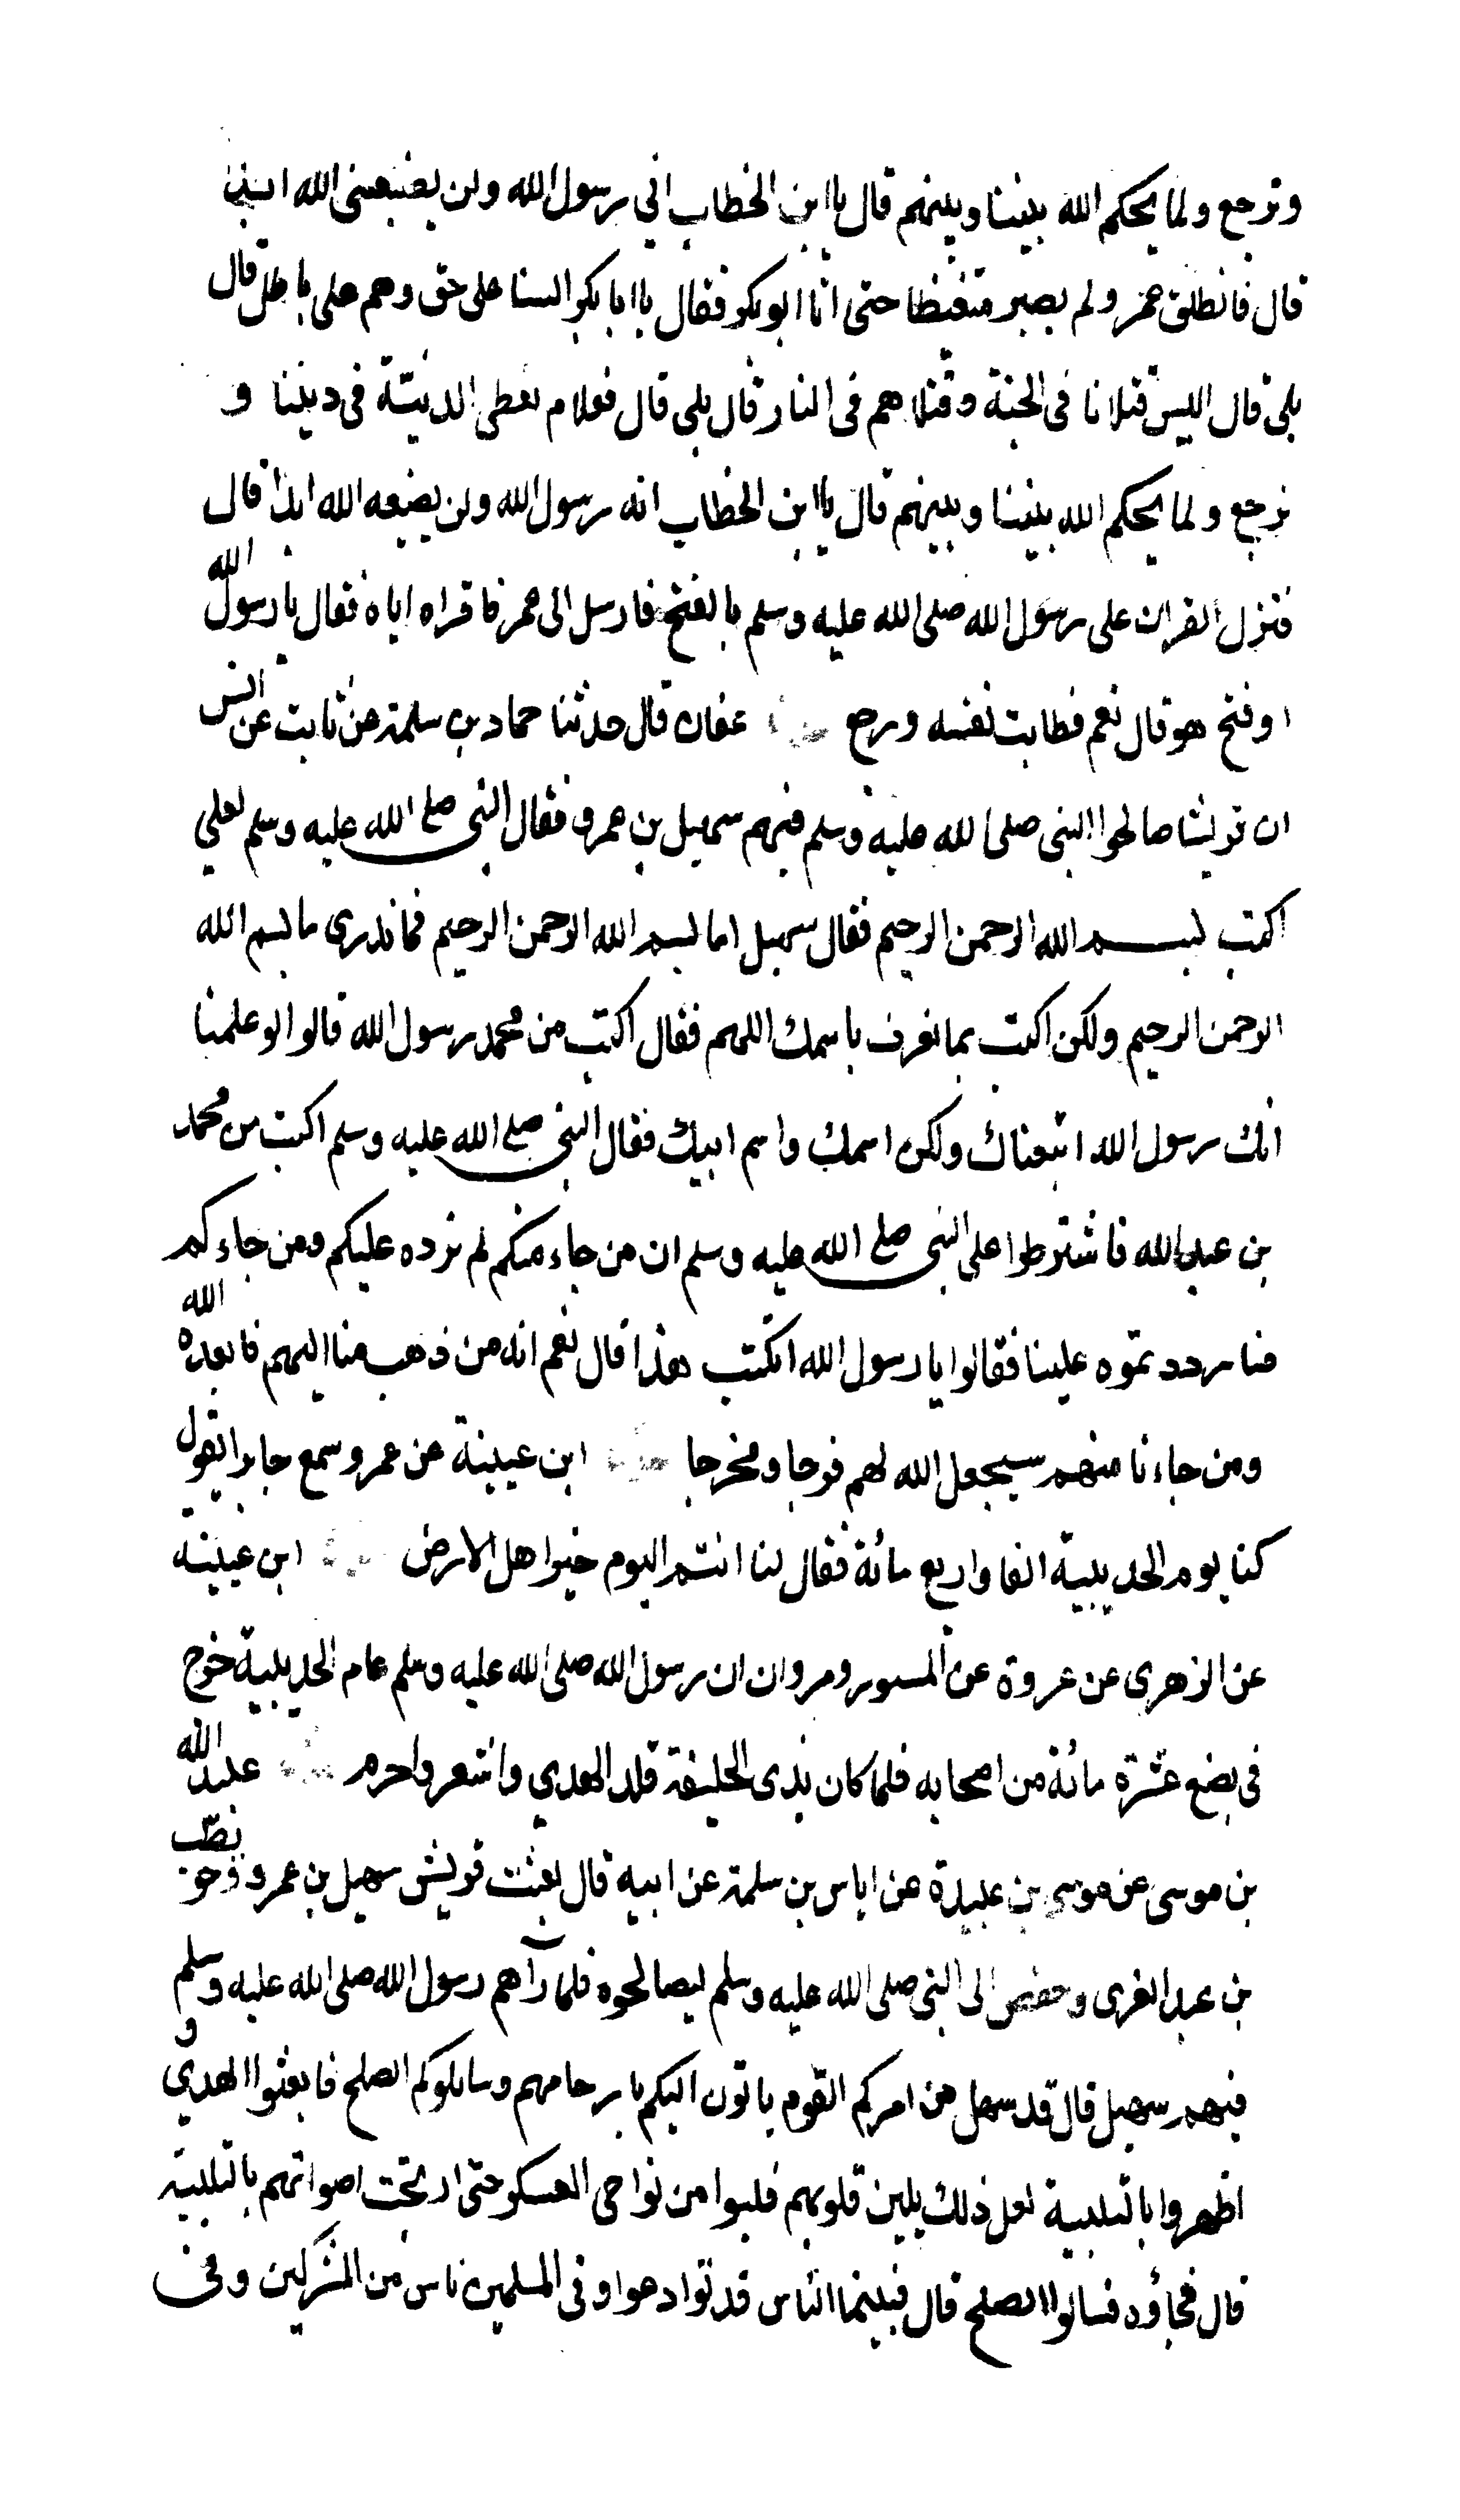 ونرجع ولما يحكم الله بيننا وبينهم قال يا ابن الخطاب اني رسول الله ولن يضيعني الله ابدا
قال فانطلق عمر ولم يصبر متغيظا حتى اتا ابو بكر فقال يا ابا بكر السنا على حق وهم على باطل قال
بلى قال اليس قتلانا فى الجنة وقتلاهم فى النار قال بلى قال فعلام نعطى الدنيّة فى ديننا و
نرجع ولما يحكم الله بيننا وبينهم قال يا ابن الخطاب انه رسول الله ولن يضيعه الله ابدا قال
فنزل القران على رسول الله صلى الله عليه وسلم بالفتح فارسل الى عمر فاقراه اياه فقال يا رسول الله
اوفتح هو قال نعم فطابت نفسه ورجع عفان قال حدثنا حماد بن سلمة عن ثابت عن انس
ان قريشا صالحوا النبى صلى الله عليه وسلم فيهم سهيل بن عمرو فقال النبى صلى الله عليه وسلم لعلي
اكتب بسم الله الرحمن الرحيم فقال سهيل اما بسم الله الرحمن الرحيم فما ندرى ما بسم الله
الرحمن الرحيم ولكن اكتب بما نعرف باسمك اللهم فقال اكتب من محمد رسول الله قالوا لو علمنا
انك رسول الله اتبعناك ولكن اسمك واسم ابيك فقال النبى صلى الله عليه وسلم اكتب من محمد
بن عبد الله فاشترطوا على النبى صلى الله عليه وسلم ان من جاء منكم لم نرده عليكم ومن جاءكم
منا رددتموه علينا فقالوا يا رسول الله اتكتب هذا قال نعم انه من ذهب منا اليهم فابعده الله
ومن جاءنا منهم سيجعل الله لهم فرجا ومخرجا ابن عيينة عن عمرو سمع جابرا يقول
كنا يوم الحديبية الفا واربع مائة فقال لنا انتم اليوم خير اهل الارض ابن عيينة
عن الزهرى عن عروة عن المسور ومروان ان رسول الله صلى الله عليه وسلم عام الحديبية خرج
فى بضع عشرة مائة من اصحابه فلما كان بذى الحليفة قلد الهدي واشعر واحرم عبيد الله
بن موسى عن موسى بن عبيدة عن اياس بن سلمة عن ابيه قال بعثت قريش سهيل بن عمرو وحويطب
بن عبد العزى وحفص الى النبى صلى الله عليه وسلم ليصالحوه فلما رآهم رسول الله صلى الله عليه وسلم
فيهم سهيل قال قد سهل من امركم القوم ياتون اليكم بارحامهم وسائلوكم الصلح فابعثوا الهدى و
اظهروا بالتلبية لعل ذلك يلين قلوبهم فلبوا من نواحى العسكر حتى ارتجت اصواتهم بالتلبية
قال فجاؤه فسالوا الصلح قال فبينما الناس قد توادعوا وفى المسلمين ناس من المشركين وفى